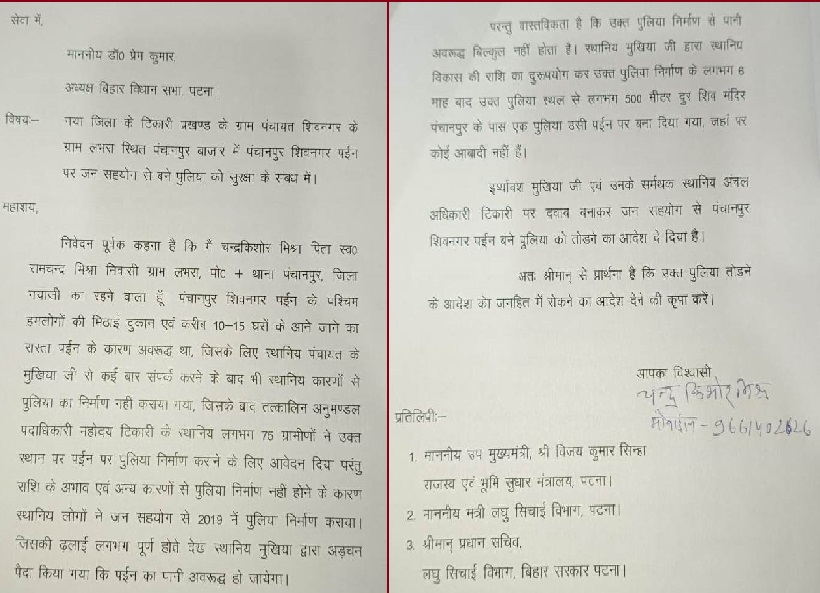 सेवा में,
माननीय डॉ0 प्रेम कुमार,
अध्यक्ष बिहार विधान सभा, पटना
विषयः– गया जिला के टिकारी प्रखण्ड के ग्राम पंचायत शिवनगर के
ग्राम लभरा स्थित पंचानपुर बाजार में पंचानपुर शिवनगर पईन
पर जन सहयोग से बने पुलिया को सुरक्षा के संबंध में।
महाशय,
निवेदन पूर्वक कहना है कि मैं चन्द्रकिशोर मिश्रा पिता स्व0
रामचन्द्र मिश्रा निवासी ग्राम लभरा, पो0 + थाना पंचानपुर, जिला
गयाजी का रहने वाला हूँ पंचानपुर शिवनगर पईन के पश्चिम
हमलोगों की मिठाई दुकान एवं करीब 10–15 घरों के आने जाने का
रास्ता पईन के कारण अवरूद्ध था, जिसके लिए स्थानिय पंचायत के
मुखिया जी से कई बार संर्पक करने के बाद भी स्थानिय कारणों से
पुलिया का निर्माण नही कराया गया, जिसके बाद तत्कालिन अनुमण्डल
पदाधिकारी महोदय टिकारी के स्थानिय लगभग 75 ग्रामीणों ने उक्त
स्थान पर पईन पर पुलिया निर्माण करने के लिए आवेदन दिया परंतु
राशि के अभाव एवं अन्य कारणों से पुलिया निर्माण नही होने के कारण
स्थानिय लोगों ने जन सहयोग से 2019 में पुलिया निर्माण कराया।
जिसकी ढ़लाई लगभग पूर्ण होते देख स्थानिय मुखिया द्वारा अड़चन
पैदा किया गया कि पईन का पानी अवरूद्ध हो जायेगा।
परन्तु वास्तविकता है कि उक्त पुलिया निर्माण से पानी
अवरूद्ध बिल्कुल नहीं होता है। स्थानिय मुखिया जी द्वारा स्थानिय
विकास की राशि का दुरूपयोग कर उक्त पुलिया निर्माण के लगभग 6
माह बाद उक्त पुलिया स्थल से लगभग 500 मीटर दुर शिव मंदिर
पंचानपुर के पास एक पुलिया उसी पईन पर बना दिया गया, जहां पर
कोई आबादी नहीं हैं।
इर्ष्यावश मुखिया जी एवं उनके सर्मथक स्थानिय अंचल
अधिकारी टिकारी पर दवाब बनाकर जन सहयोग से पंचानपुर
शिवनगर पईन बने पुलिया को तोडने का आदेश दे दिया है।
अतः श्रीमान् से प्रार्थना है कि उक्त पुलिया तोडने
के आदेश को जनहित में रोकने का आदेश देने की कृपा करें।
आपका विश्वासी
चन्द्र किशोर मिश्रा
मोबाईल –
प्रतिलिपीः–
1. माननीय उप मुख्यमंत्री, श्री विजय कुमार सिन्हा
राजस्व एवं भूमि सुधार मंत्रालय, पटना।
2. माननीय मंत्री लघु सिचाई विभाग, पटना।
3. श्रीमान् प्रधान सचिव,
लघु सिचाई विभाग, बिहार सरकार पटना।